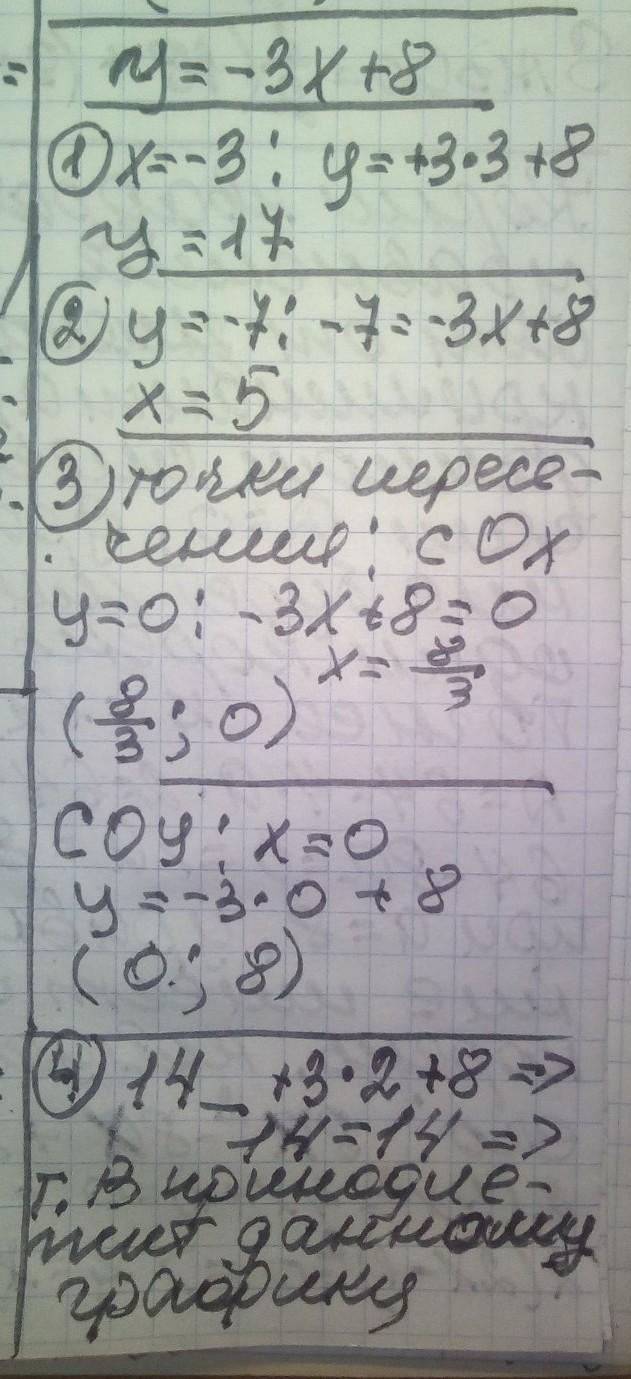 y = -3x + 8
① x = -3: y = +3·3 + 8
y = 17
② y = -7: -7 = -3x + 8
x = 5
③ точки пересе-
чения: с Ox
y = 0: -3x + 8 = 0
x = 8/3
(8/3; 0)
с Oy: x = 0
y = -3·0 + 8
(0; 8)
④ 14 = +3·2 + 8 =>
14 = 14 =>
т. В принадле-
жит данному
графику